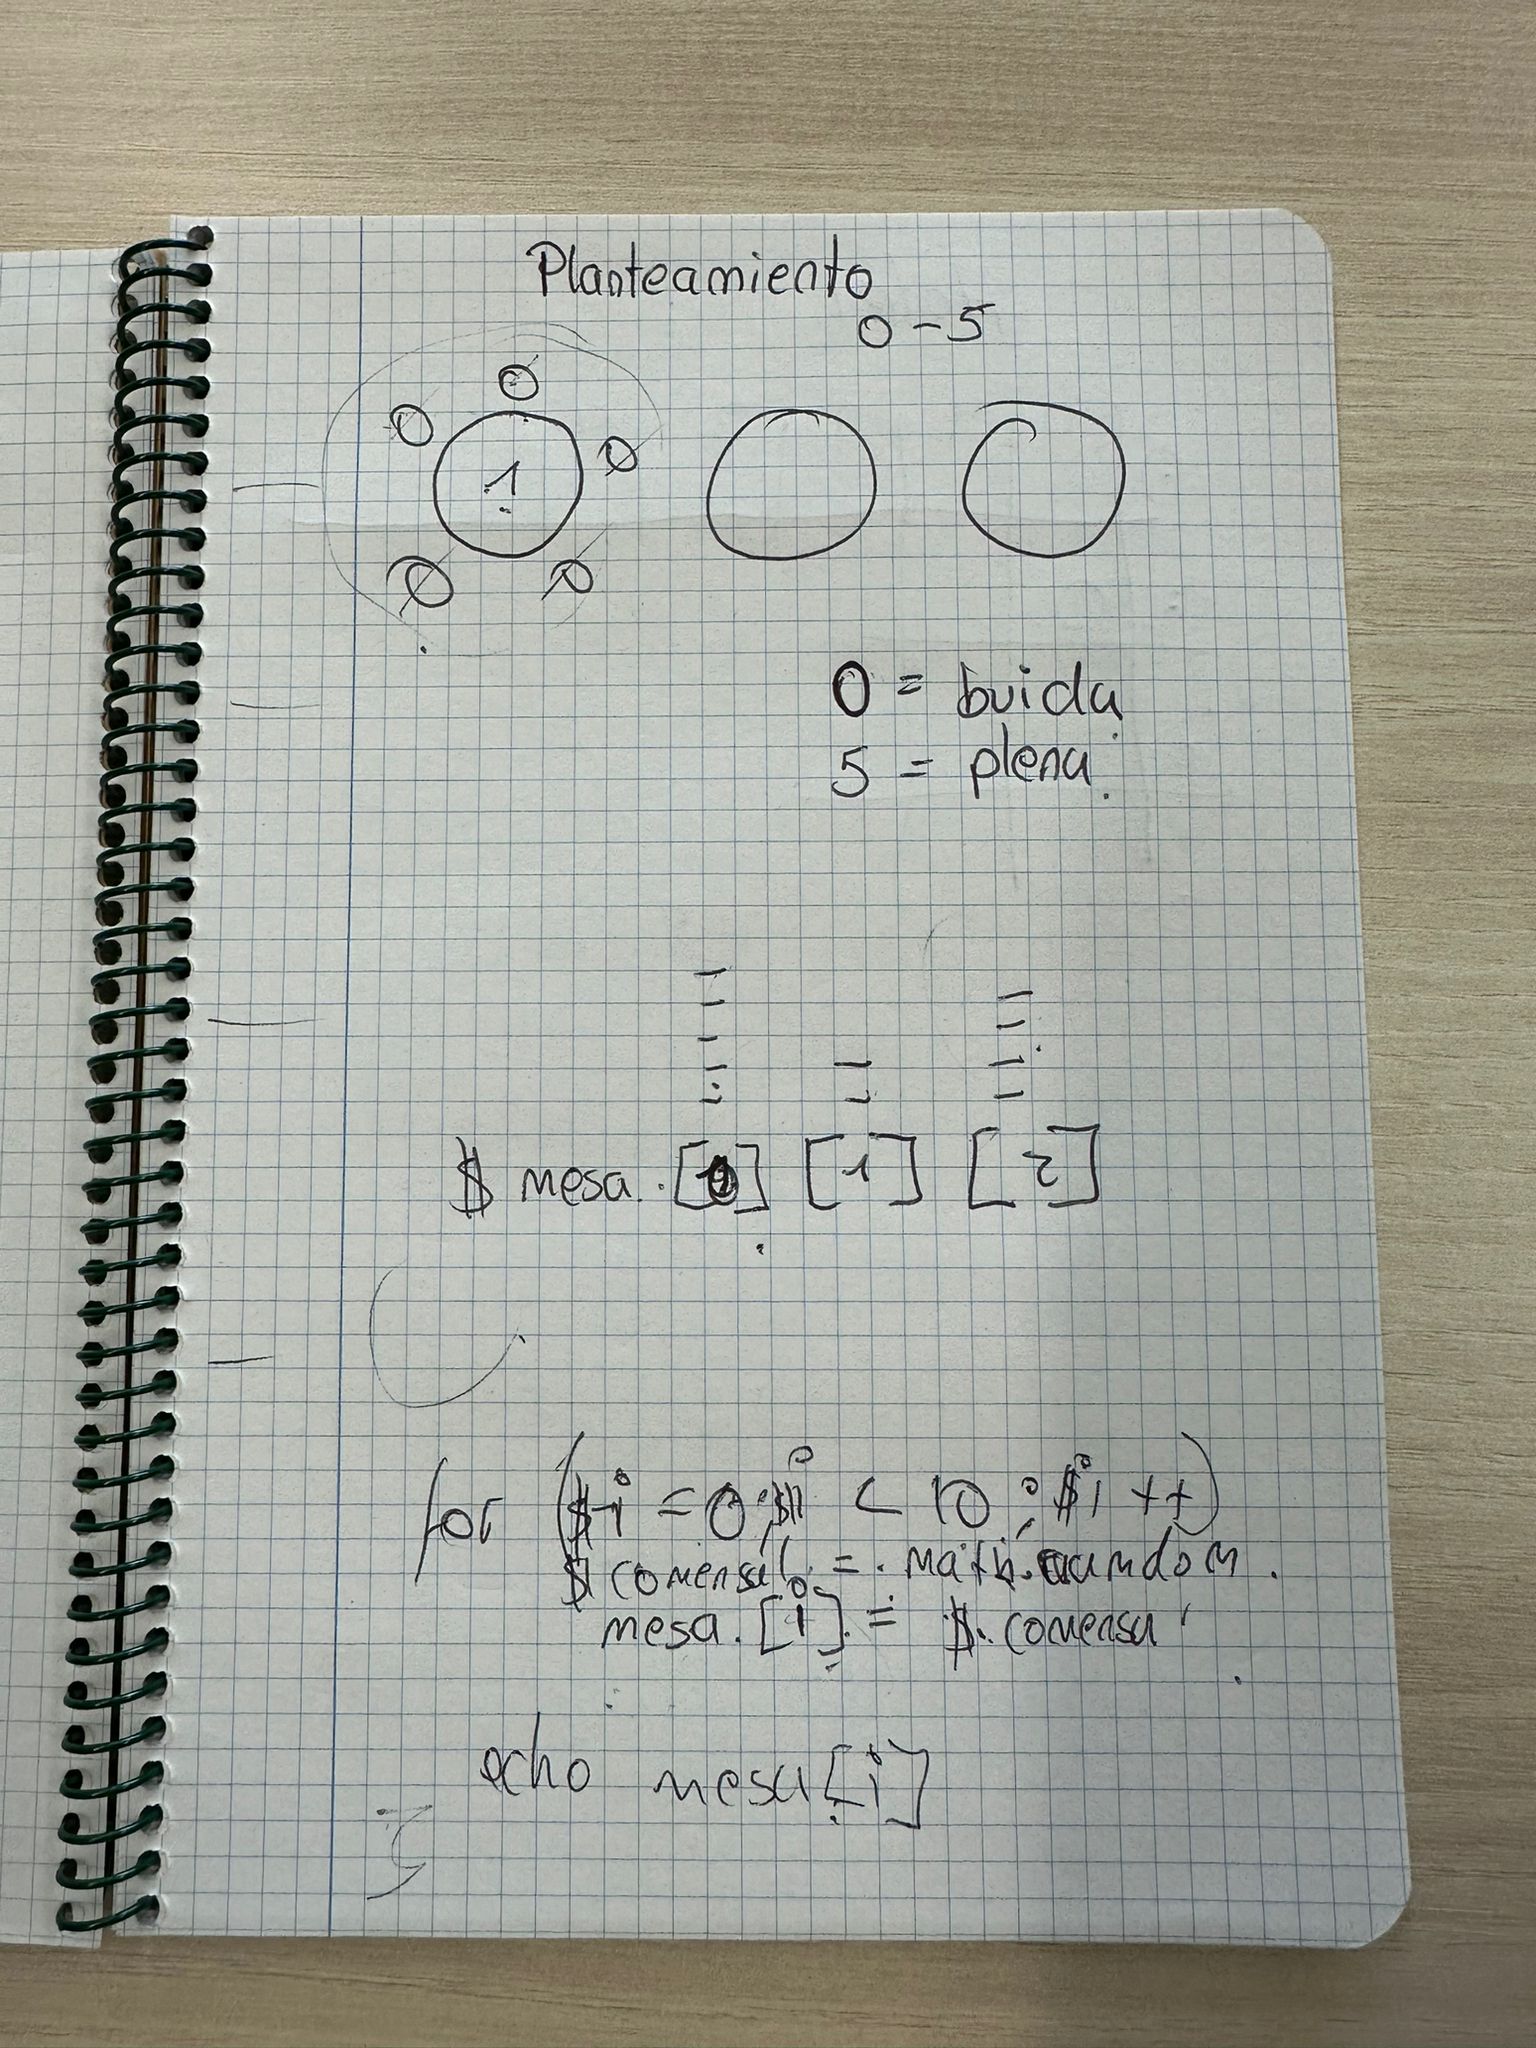 Planteamiento
0 - 5
1
0 = buida
5 = plena
$ mesa. [0] [1] [2]
for ($i = 0; $i < 10; $i ++)
$ comensal = math.random
mesa. [i] = $. comensal
echo mesa [i]